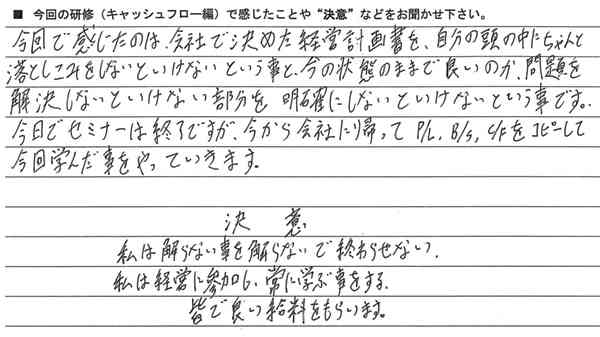 ■ 今回の研修（キャッシュフロー編）で感じたことや“決意”などをお聞かせ下さい。
今回で感じたのは、会社で決めた経営計画書を、自分の頭の中にちゃんと
落としこみをしないといけないという事と、今の状態のままで良いのか、問題を
解決しないといけない部分を明確にしないといけないという事です。
今日でセミナーは終了ですが、今から会社に帰って P/L、B/S、C/Fをコピーして
今回学んだ事をやっていきます。
決 意
私は解らない事を解らないで終わらせない。
私は経営に参加し、常に学ぶ事をする。
皆で良い給料をもらいます。